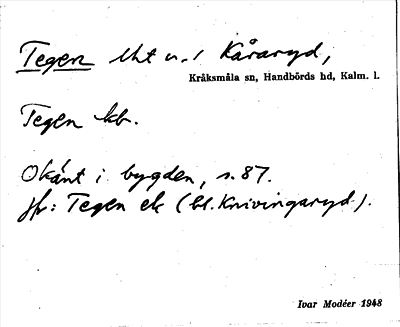 Tegen lht u. / Kåraryd,
Kråksmåla sn, Handbörds hd, Kalm. l.
Tegen kb.
Okänt i bygden, s. 87.
Jfr: Tegen ek (bl. Knivingaryd).
Ivar Modéer 1948